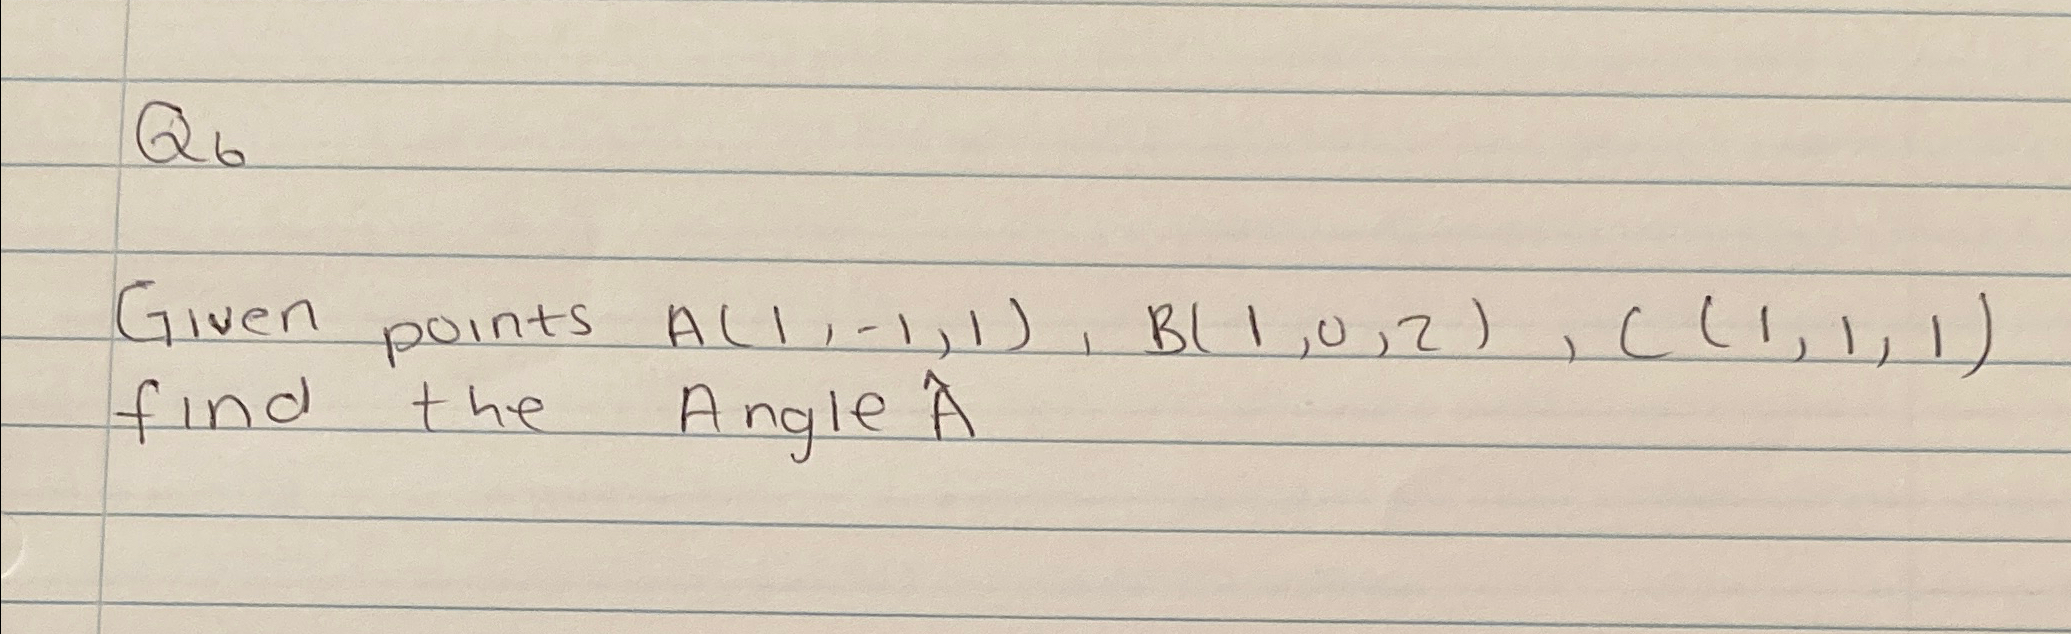 Q6
Given points A(1,-1,1), B(1,0,2), C(1,1,1)
find the Angle Â